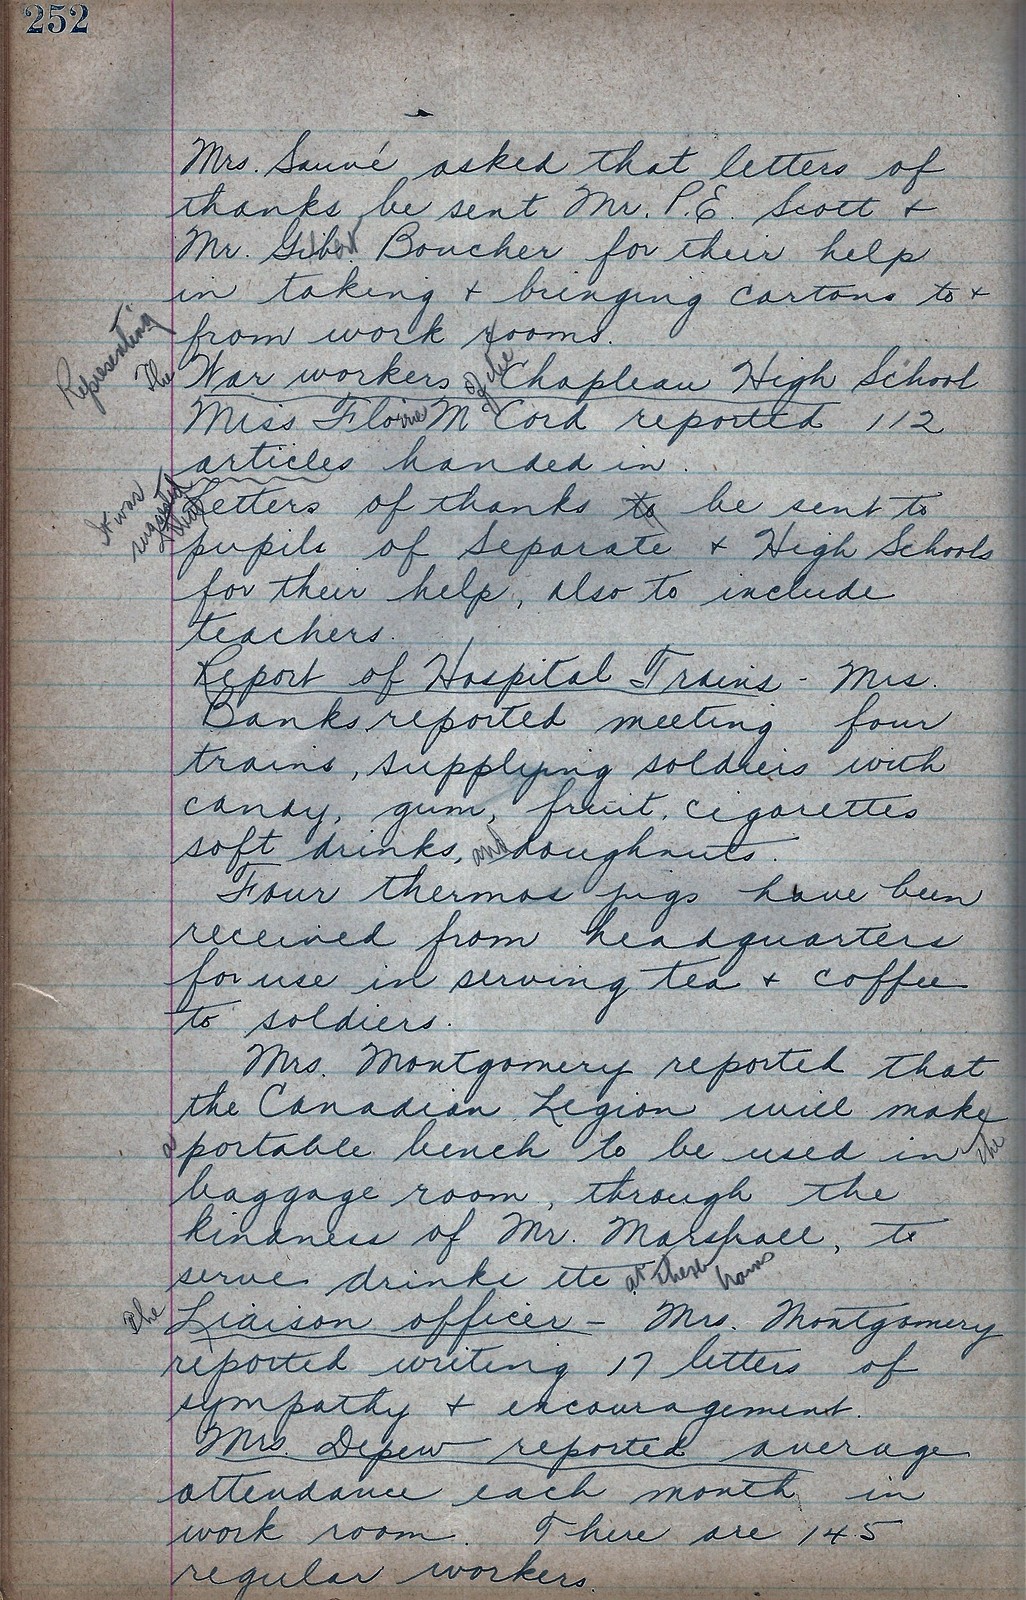 252
Mrs. Sauvé asked that letters of
thanks be sent Mr. P.E. Scott +
Mr. Gilbert Boucher for their help
in taking + bringing cartons to +
from work rooms.
Representing
The War workers of the Chapleau High School
Miss Florrie McCord reported 112
articles handed in.
It was suggested that
Letters of thanks to be sent to
pupils of Separate + High Schools
for their help, also to include
teachers.
Report of Hospital Trains - Mrs.
Banks reported meeting four
trains, supplying soldiers with
candy, gum, fruit, cigarettes
soft drinks, and doughnuts.
Four thermos jugs have been
received from headquarters
for use in serving tea + coffee
to soldiers.
Mrs. Montgomery reported that
the Canadian Legion will make
a portable bench to be used in the
baggage room, through the
kindness of Mr. Marshall, to
serve drinks etc at these trains
The Liaison officer - Mrs. Montgomery
reported writing 17 letters of
sympathy + encouragement.
Mrs. Depew reported average
attendance each month in
work room. There are 145
regular workers.